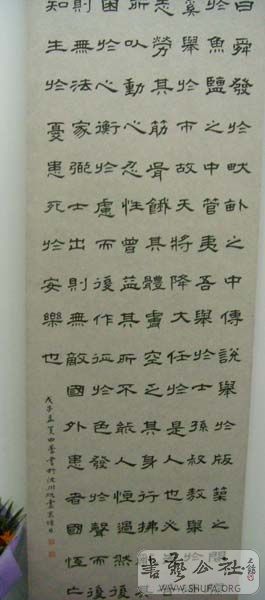 曰舜發於畎畝之中傅說舉於版築之
於魚鹽之中管夷吾舉於士孫叔敖舉於
奚舉於市故天將降大任於是人也必
志勞其筋骨餓其體膚空乏其身行拂
所以動心忍性曾益其所不能人恒過然後
困於心衡於慮而後作徵於色發於聲而後
則無法家弼士出則無敵國外患者國恒亡
知生於憂患死於安樂也
書藝公社
WWW.SHUFA.ORG